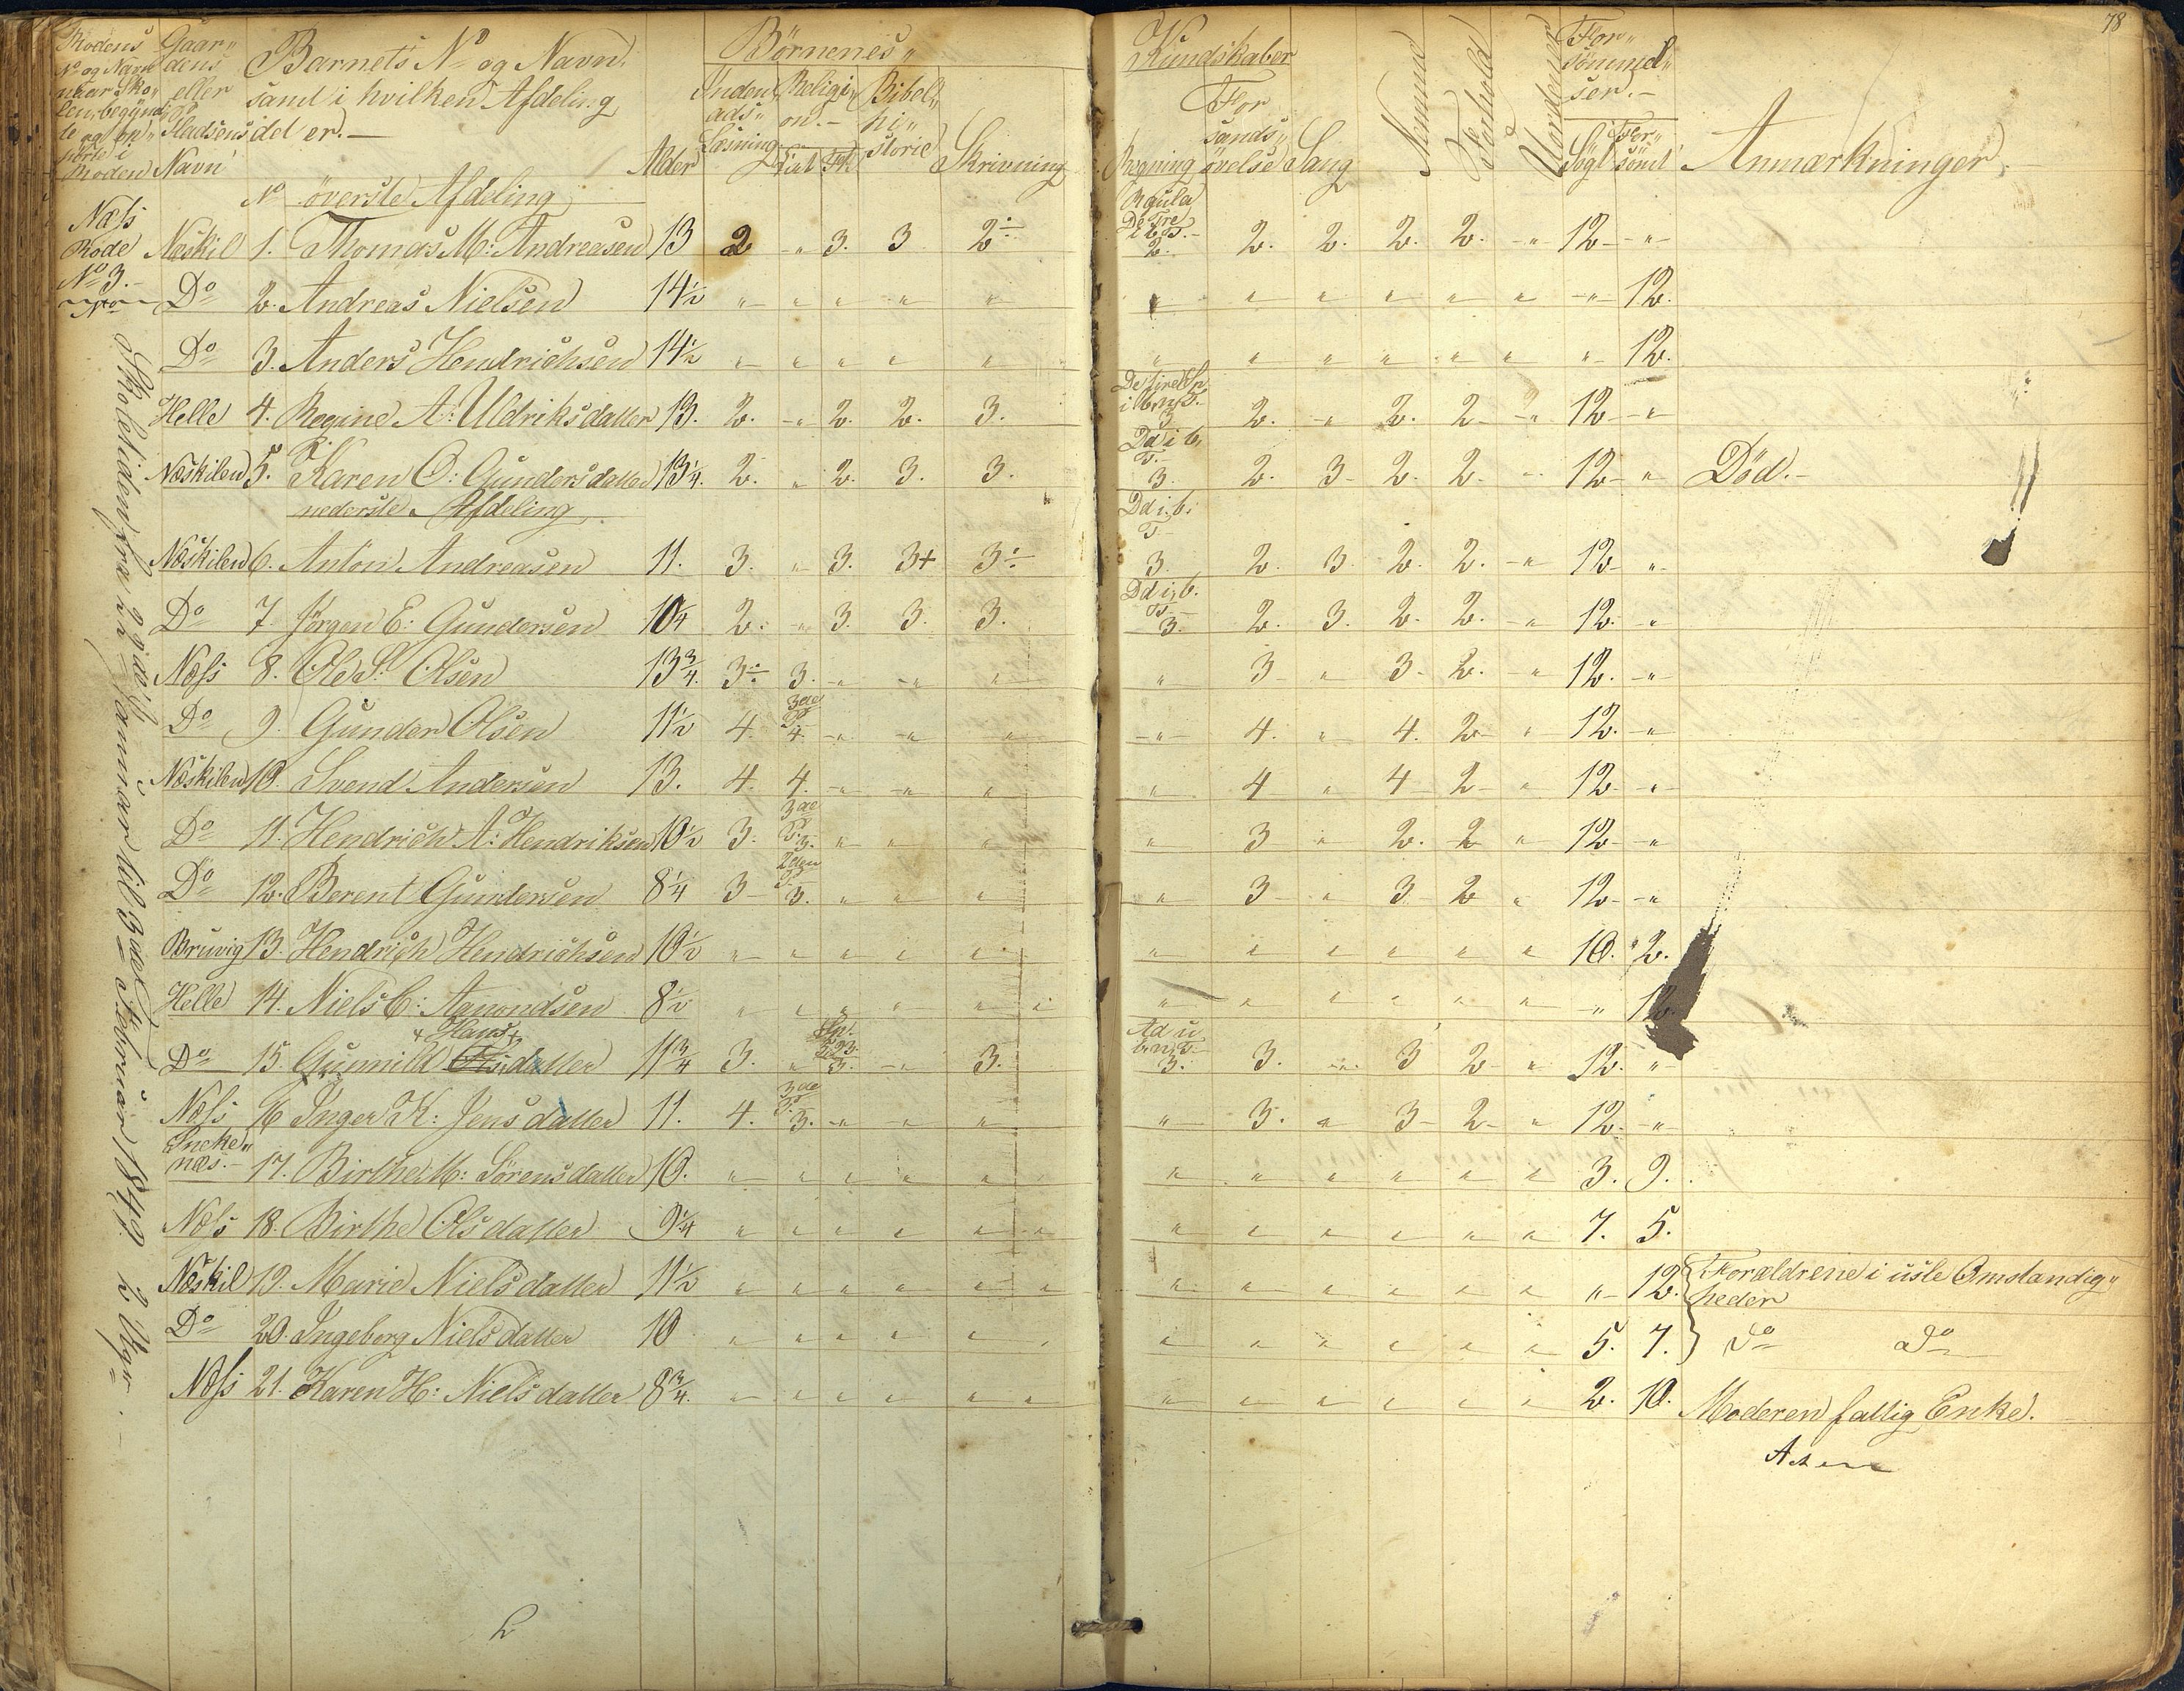 78
Rodens Gaar„ Barnets No og Navn, Börnenes„ Kundskaber For„
No og Navn dens samt i hvilken Afdeling Inden„ Religi„ Bibel„ For sömmel„
naar Sko„ eller det er.— ads„ on.— hi„ sands„ Nemme Forhold ser.—
len begynd„ Pladsens Læsning storie Regning övelse Sang Sögt For„
Navn Alder Skrivning sömt Anmærkninger.
Roden
No överste Afdeling
Regula
De Tre
Næss Rode Næskil 1. Thomas M: Andreasen 13 2 „ 3. 3 2÷ 2. 2. 2. 2. 2. „ 12 „
No 3. Do 2. Andreas Nielsen 14½ „ „ „ „ „ „ „ „ „ „ „ „ 12.
Do 3. Anders Hendrichsen 14½ „ „ „ „ „ „ „ „ „ „ „ „ 12.
Helle 4. Regine A: Uldriksdatter 13. 2. „ 2. 2. 3. 3 2. „ 2. 2 „ 12 „
Næskilen 5. Karen O: Gundersdatter 13¼. 2. „ 2. 3. 3. 3. 2. 3 2. 2. „ 12 „ Död.—
nederste Afdeling
Næskilen 6. Anton Andreasen 11. 3. „ 3. 3+ 3÷ 3. 2. 3. 2. 2. „ 12 „
Do 7. Jörgen E: Gundersen 10¼ 2. „ 3. 3. 3. 3. 2. 3. 2. 2. „ 12. „
Næss 8. Ole S: Olsen 13¾. 3÷ 3. „ „ „ „ 3 „ 3. 2. „ 12. „
3de
Do 9. Gunder Olsen 11½ 4. 4. „ „ „ „ 4. „ 4. 2 „ 12. „
Næskilen 10. Svend Andersen 13. 4. 4. „ „ „ „ 4 „ 4 2 „ 12. „
3de
Do 11. Hendrich A: Hendriksen 10½ 3. 3. „ „ „ „ 3 „ 2. 2 „ 12 „
2den
Do 12. Berent Gundersen 8¼ 3 3. „ „ „ „ 3 „ 3 2 „ 12 „
Bruvig 13. Hendrich Hendrichsen 10½ „ „ „ „ „ „ „ „ „ „ „ 10. 2.
Helle 14. Niels C: Aamondsen 8½ „ „ „ „ „ „ „ „ „ „ „ „ 12.
Hans
Do 15. Gunnild Olsdatter 11¾ 3. „ 3. „ 3. 3. 3. „ 3 2 „ 12. „
3de
Næss 16 Inger K: Jensdatter 11. 4. 3. „ „ „ „ 3. „ 3 2 „ 12. „
Sneke„
næs.— 17. Birthe M: Sörensdatter 10. „ „ „ „ „ „ „ „ „ „ „ 3. 9.
Næss 18. Birthe Olsdatter 9¼ „ „ „ „ „ „ „ „ „ „ „ 7. 5.
Næskil 19. Marie Nielsdatter 11½ „ „ „ „ „ „ „ „ „ „ „ „ 12. Forældrene i usle Omstændig„
heder
Do 20. Ingeborg Nielsdatter 10 „ „ „ „ „ „ „ „ „ „ „ 5. 7. Do Do
Næss 21. Karen H: Nielsdatter 8¾. „ „ „ „ „ „ „ „ „ „ „ 2. 10. Moderen fattig Enke.
Skoletiden fra 22de Januar til 3de Februar 1849. 2 Uger.